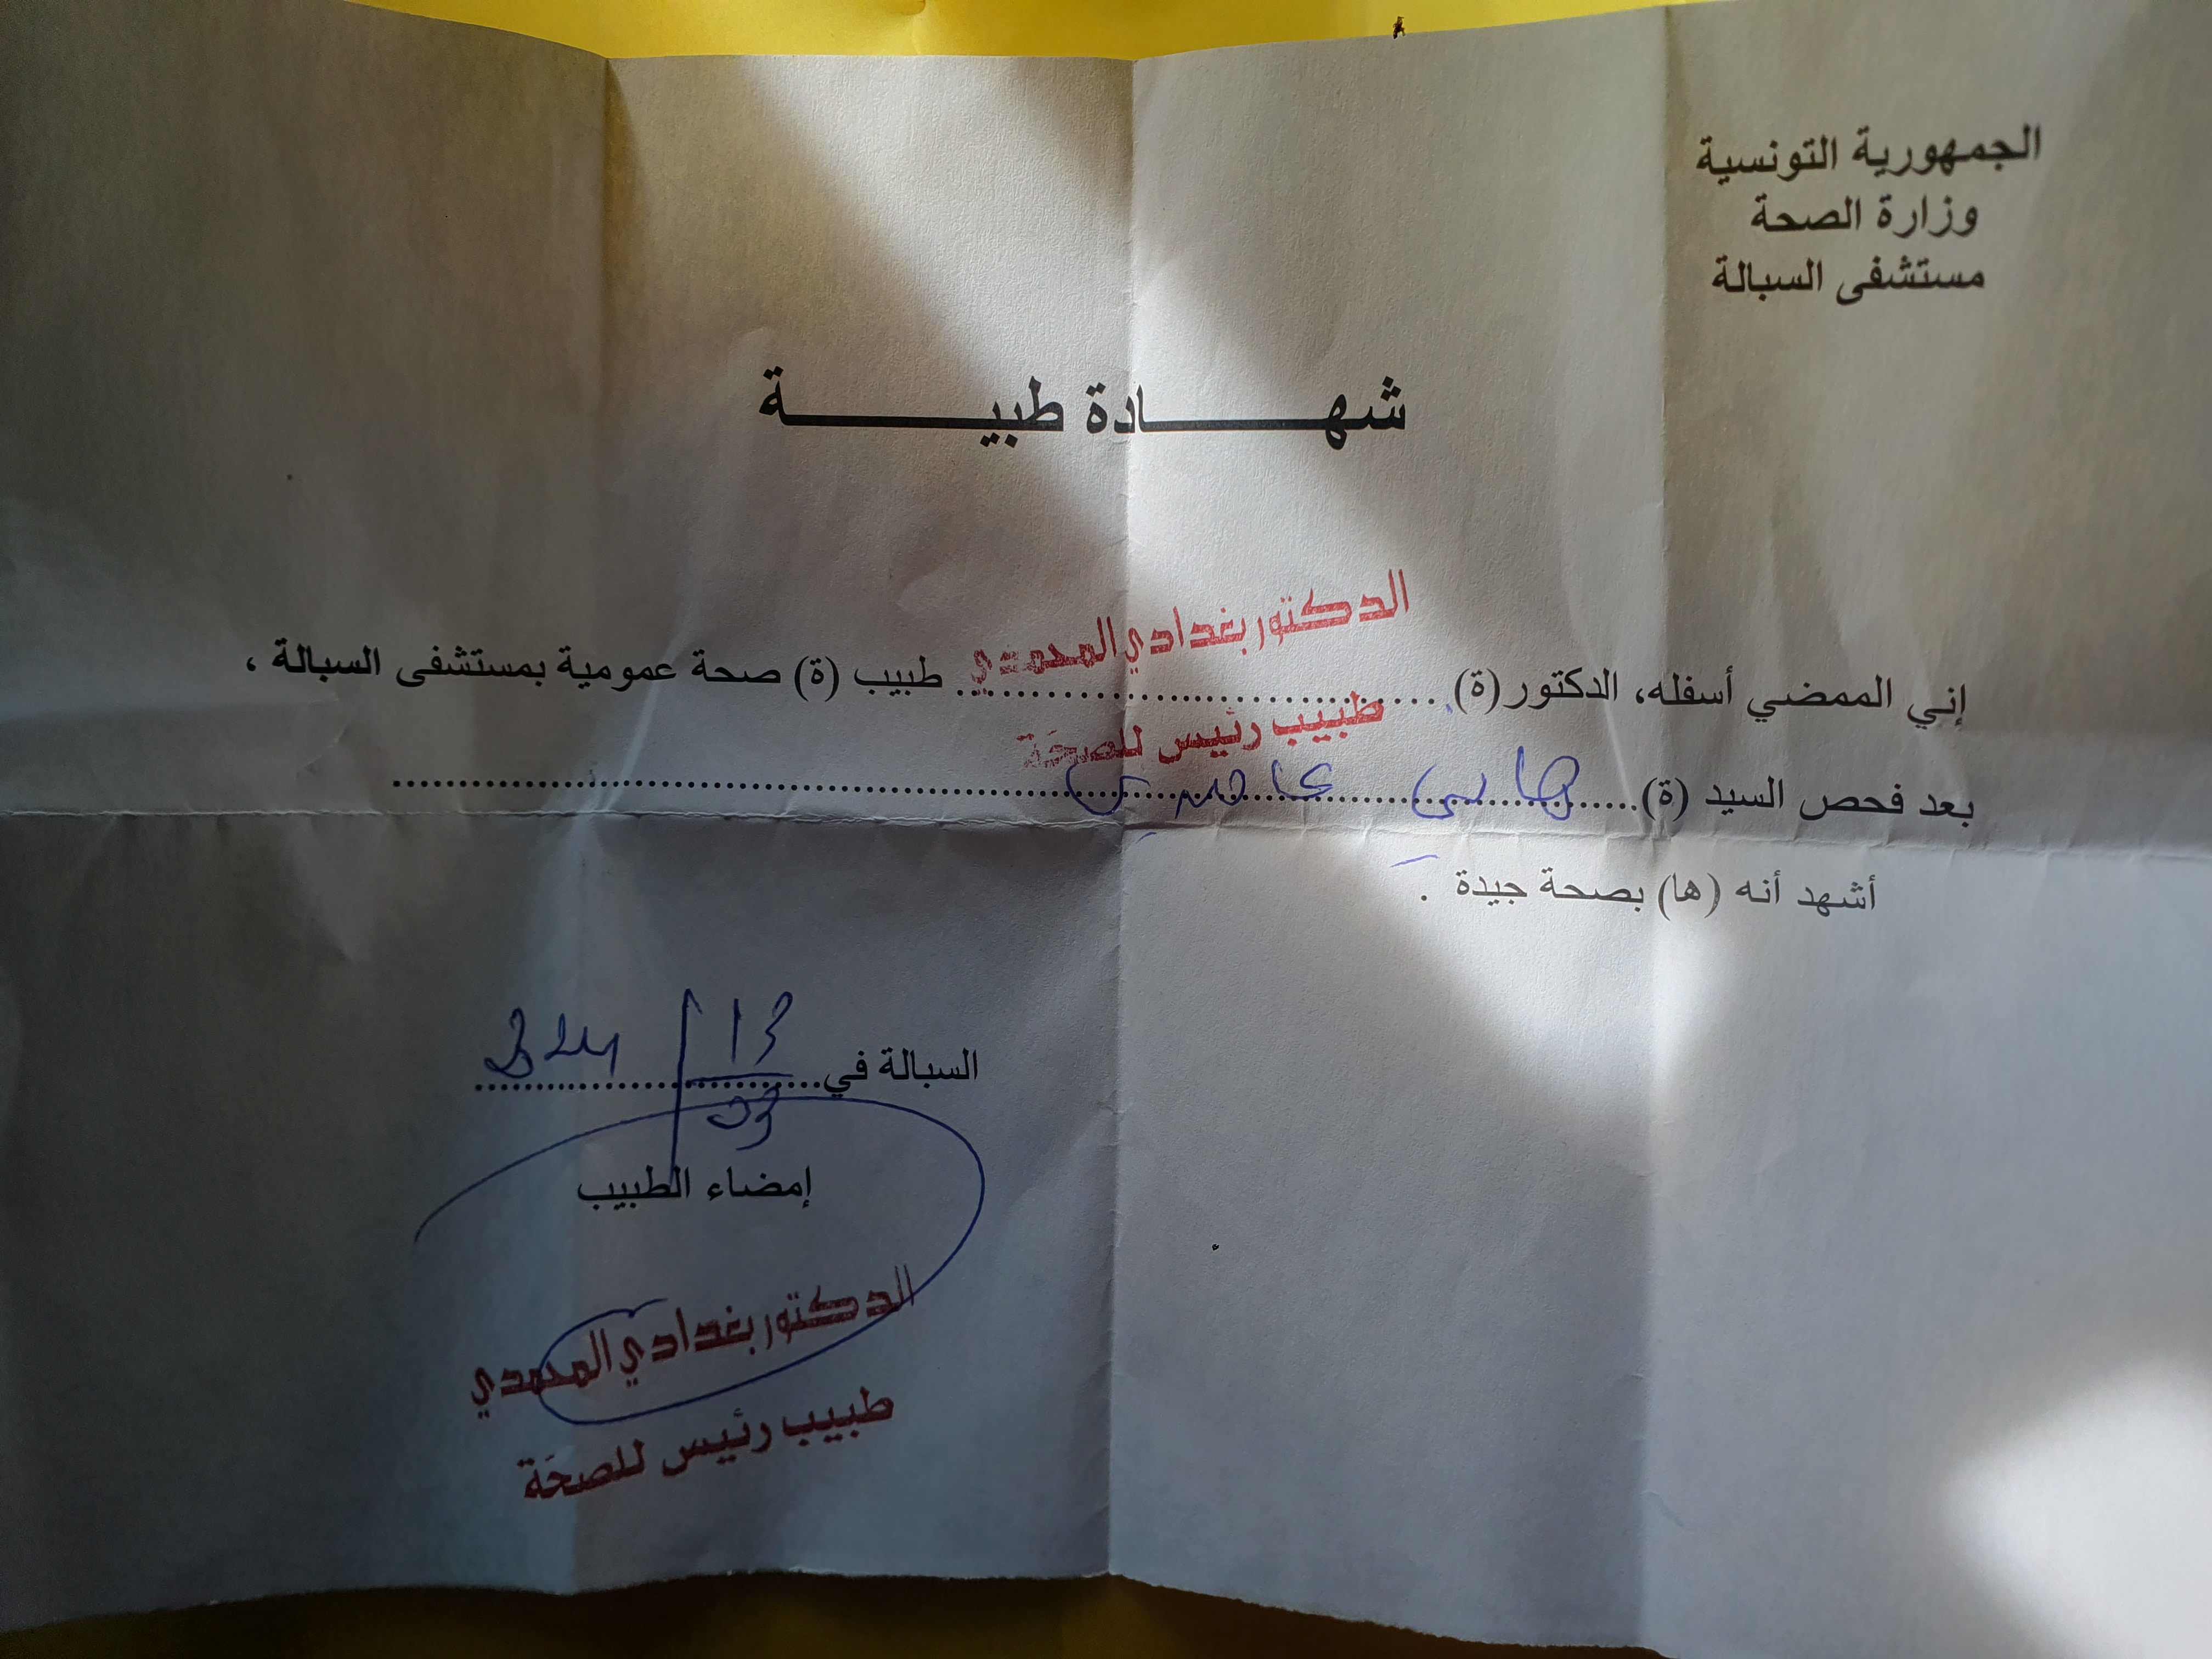 الجمهورية التونسية
وزارة الصحة
مستشفى السبالة
شهـــــــادة طبيـــــــــة
الدكتور بغدادي المحمدي
إني الممضي أسفله، الدكتور (ة) .................................... طبيب (ة) صحة عمومية بمستشفى السبالة ،
طبيب رئيس للصحة
بعد فحص السيد (ة)................................................................
أشهد أنه (ها) بصحة جيدة .
السبالة في.......... 13
03
إمضاء الطبيب
الدكتور بغدادي المحمدي
طبيب رئيس للصحة